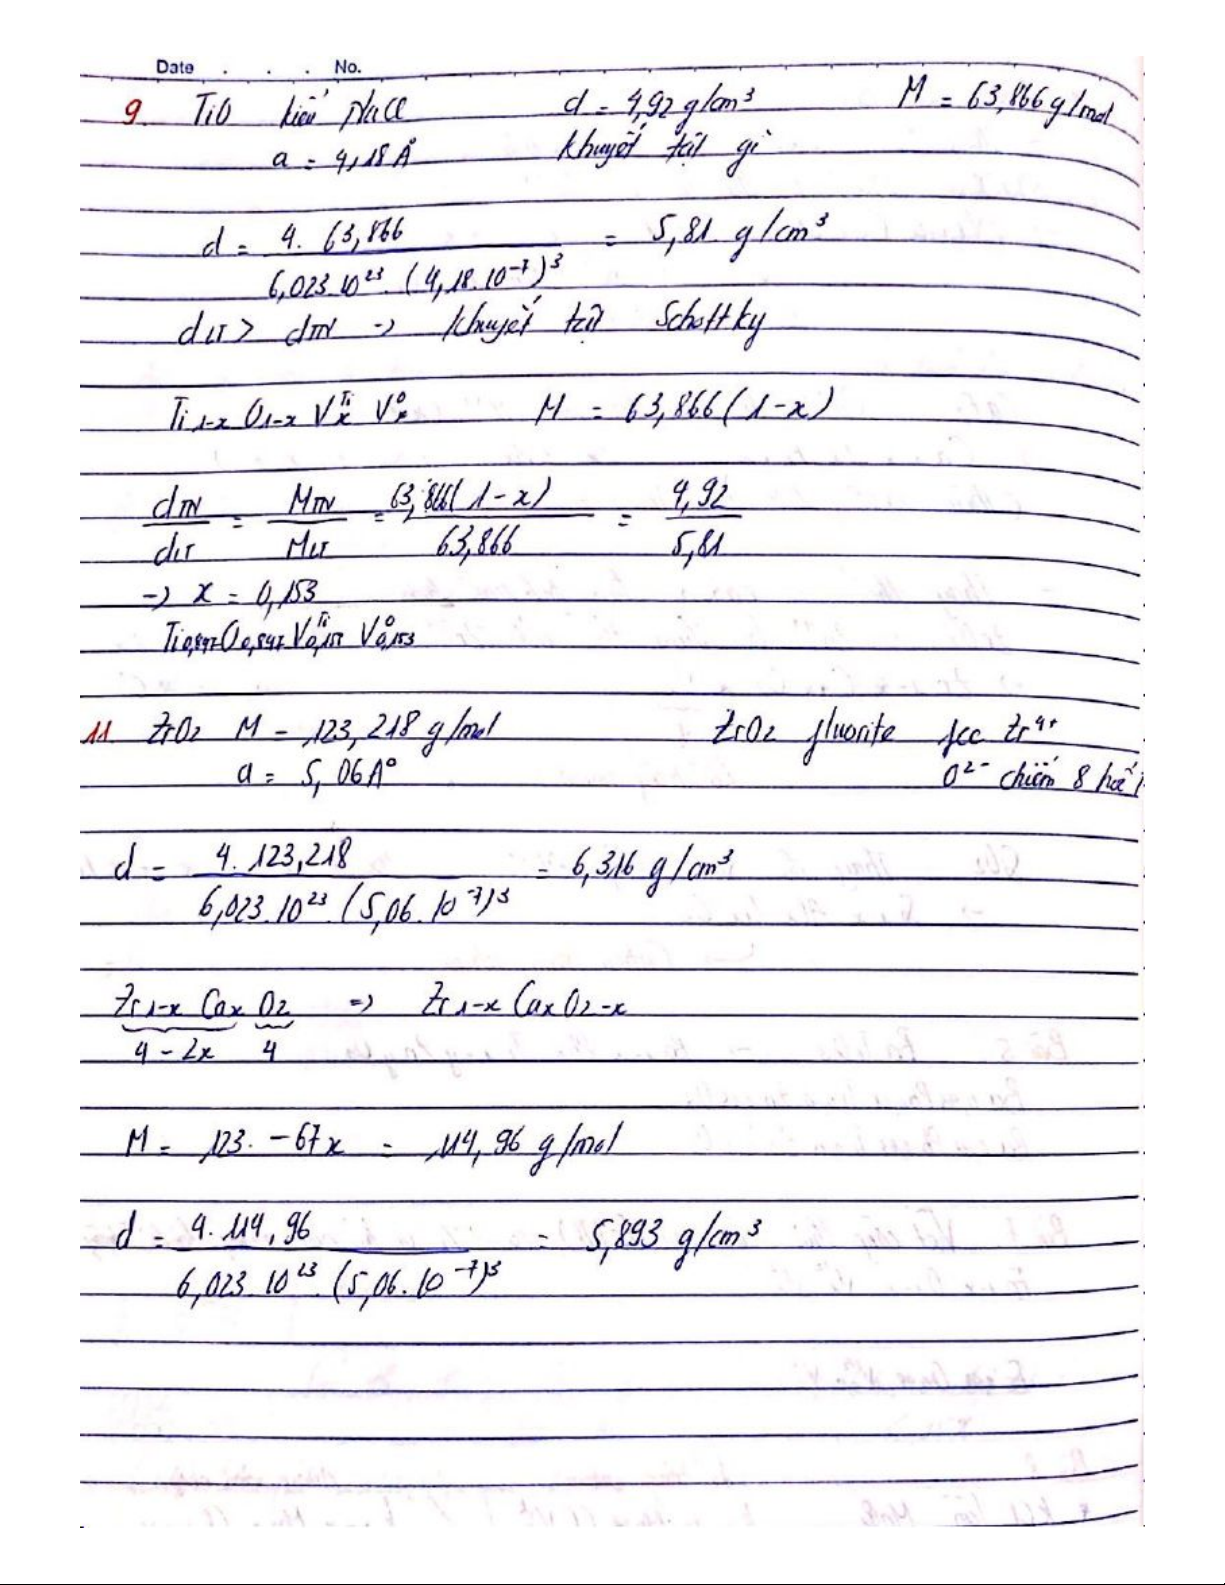 Date . . . No.
9 TiO kiểu NaCl d = 4,92 g/cm³ M = 63,866 g/mol
a = 4,18 A° khuyết tật gì
d = 4. 63,866 / 6,023.10²³. (4,18.10⁻⁷)³ = 5,81 g/cm³
dLT > dTN → khuyết tật Schottky
Ti1-x O1-x Vx^Ti Vx^O M = 63,866(1-x)
dTN / dLT = MTN / MLT = 63,866(1-x) / 63,866 = 4,92 / 5,81
→ x = 0,153
Ti0,847O0,847 V0,153^Ti V0,153^O
11 ZrO2 M = 123,218 g/mol ZrO2 fluorite fcc Zr⁴⁺
a = 5,06A° O²⁻ chiếm 8 hốc
d = 4. 123,218 / 6,023.10²³ (5,06.10⁻⁷)³ = 6,316 g/cm³
Zr1-x Cax O2 => Zr1-x CaxO2-x
4-2x 4
M = 123. - 67x = 114,96 g/mol
d = 4. 114,96 / 6,023.10²³ (5,06.10⁻⁷)³ = 5,893 g/cm³